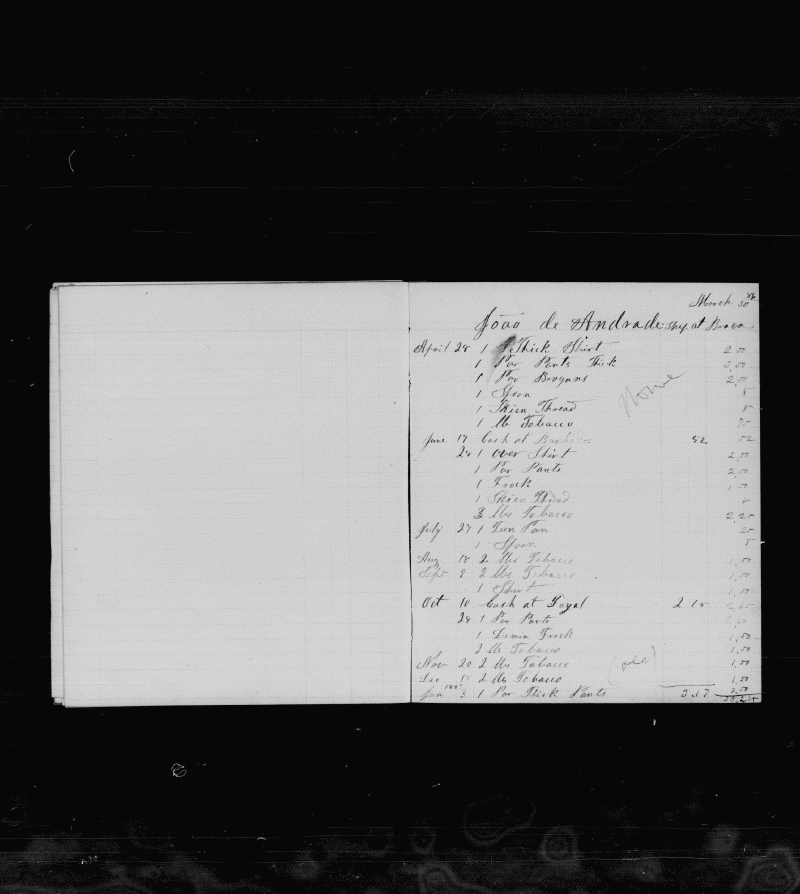 March 30
João de Andrade Ship at Brava
April 28 1 Thick Shirt 2,50
1 Par Pants Thick 3,50
1 Par Brogans 2,50
1 Spoon 8
1 Skien Thread 8
1 lb Tobacco
June 17 Cash at 52 52
28 1 over Shirt 2,50
1 Par Pants 2,50
1 Frock 1,50
1 Skien Thread 8
3 lbs Tobacco 2,25
July 27 1 Teen Pan 25
1 Spoon 5
Aug 18 2 lbs Tobacco 1,50
Sept 8 2 lbs Tobacco 1,50
1 Shirt 1,50
Oct 10 Cash at Fayal
28 1 Par Pants
1 Frock 1,50
2 lbs Tobacco 1,50
Nov 20 2 lbs Tobacco 1,50
Dec 2 lbs Tobacco 1,50
Jan 3 1 Par Thick Pants
(over)